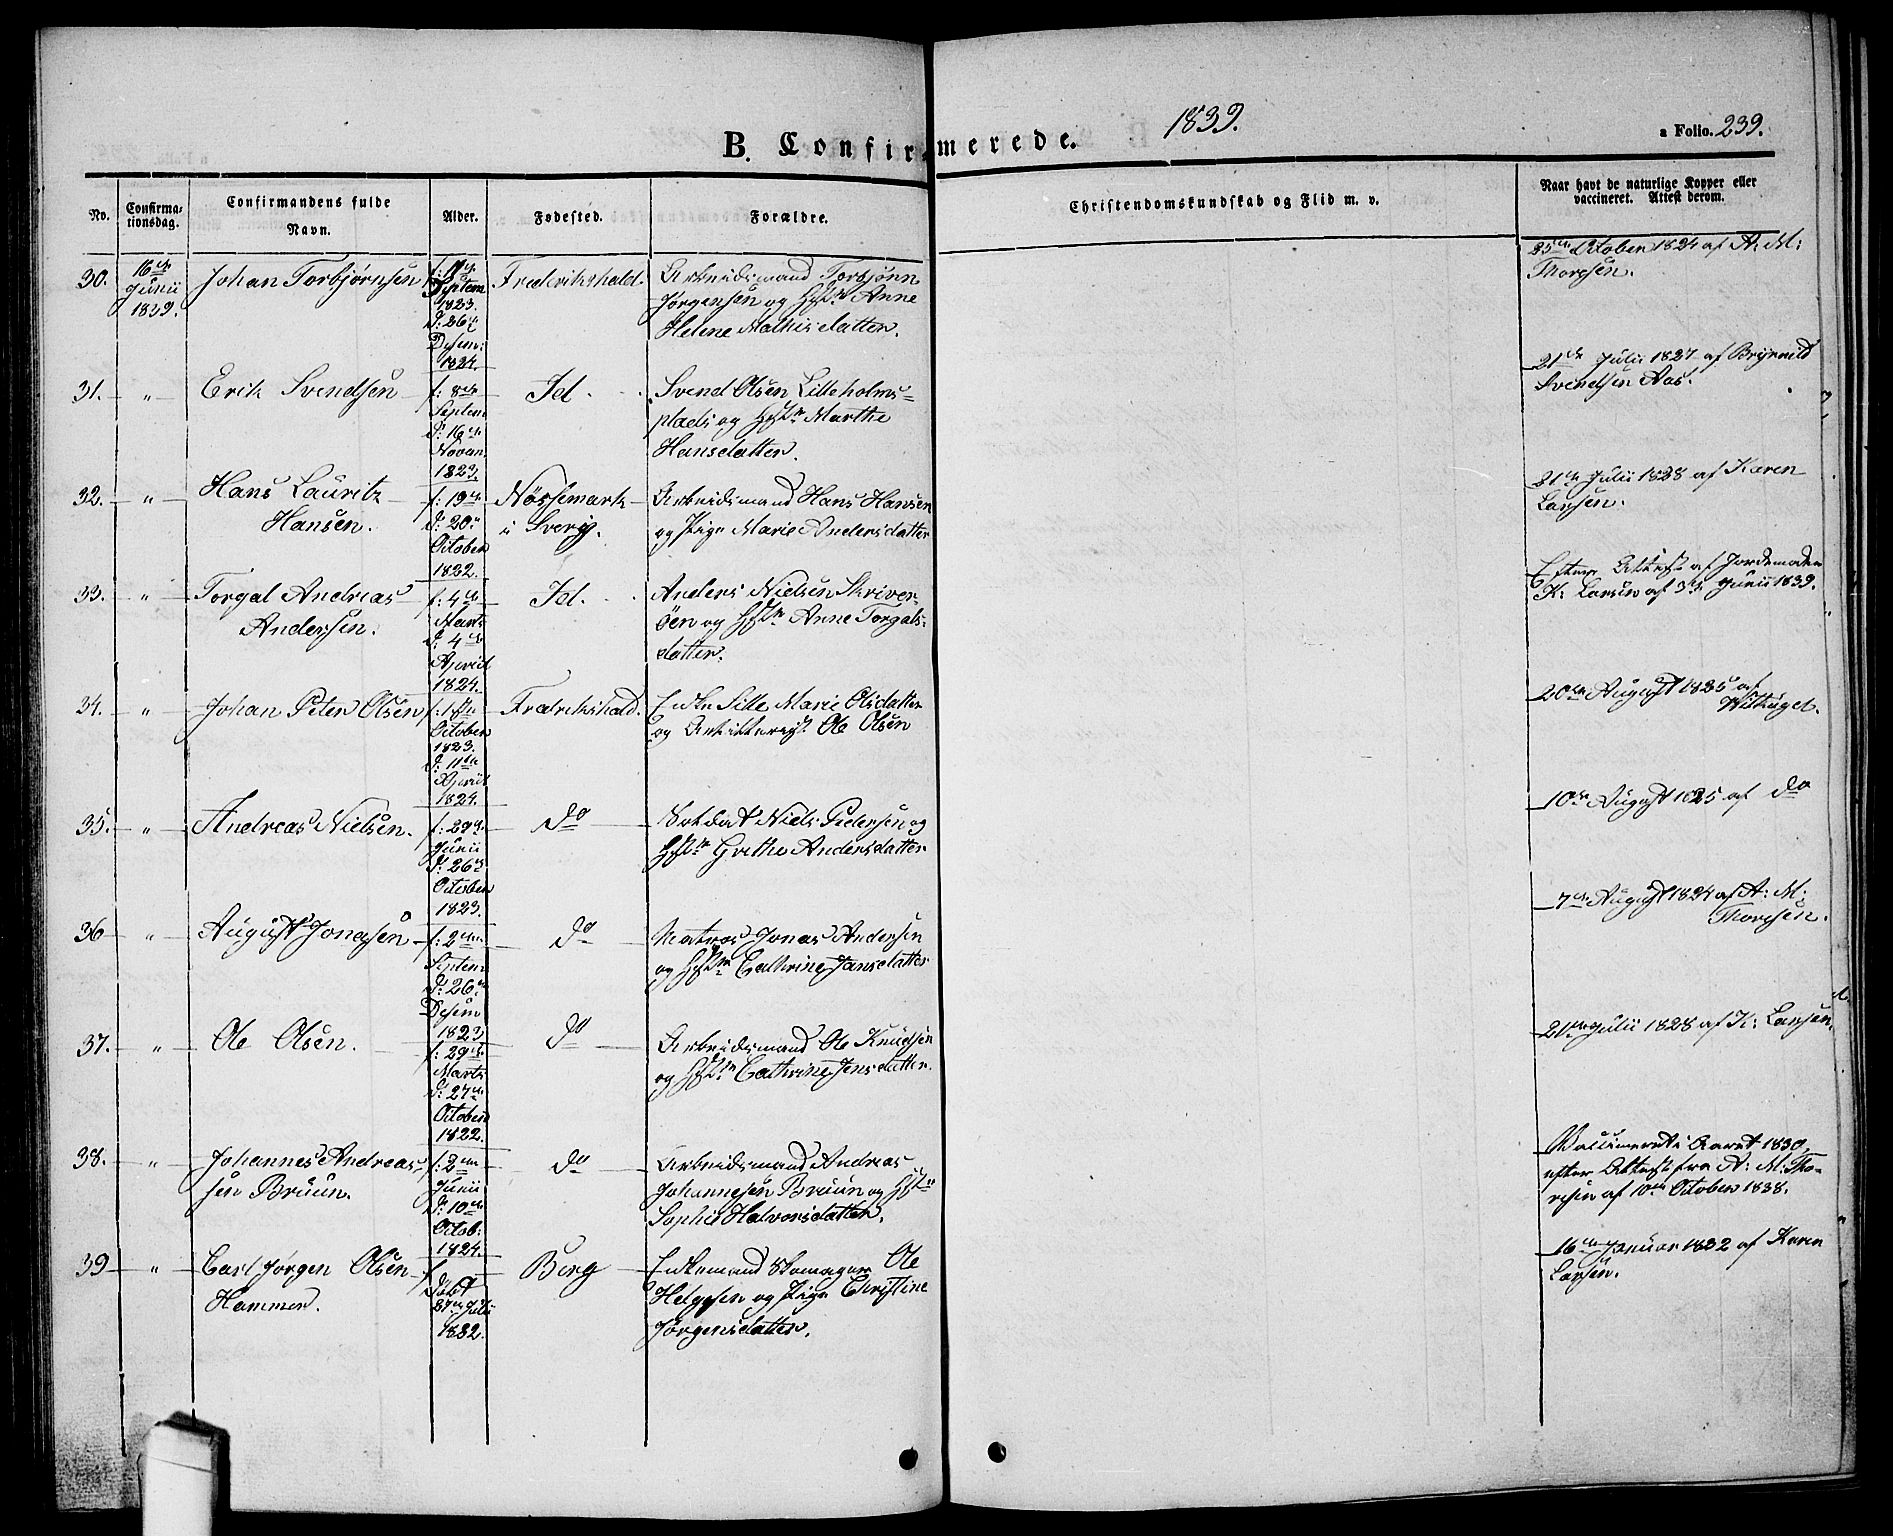 1839.
B. Confirmerede.
a Folio. 239.
No.
Confirma-
tionsdag.
Confirmandens fulde
Navn.
Alder.
Fødested.
Forældre.
Christendomskundskab og Flid m. v.
Naar havt de naturlige Kopper eller
vaccineret. Attest derom.
30.
16de
Junii
1839.
Johan Torbjørnsen
f: 11te
Septem
1823.
d: 26de
Desem:
1824.
Frederikshald.
Arbeidsmand Torbjønn
Jørgensen og Hstr Anne
Helene Mathisdatter.
25de October 1824 af A: M:
Thoresen.
31.
"
Erik Svendsen
f: 8de
Septem
d: 16de
Novem
1823.
Id.
Svend Olsen Lilleholms-
plads og Hstr Marthe
Hansdatter.
21de Julii 1827 af Brynnild
Svendsen Aas.
32.
"
Hans Lauritz
Hansen.
f: 19de
d: 20de
October
1822.
Nössemark
i Sverig.
Arbeidsmand Hans Hansen
og Pige Marie Andersdatter
21de Julii 1828 af Karen
Larsen.
33.
"
Torgal Andreas
Andersen.
f: 4de
Marts
d: 4de
April
1824.
Id.
Anders Nielsen Skriver-
öen og Hstr Anne Torgals-
datter.
Efter Attest af Jordemoder
K: Larsen af 3de Junii 1839.
34.
"
Johan Peter Olsen
f: 1ste
October
1823.
d: 11te
April
1824.
Fredrikshald.
Enke Sille Marie Olsdatter
og Artillerist Ole Olsen
20de August 1825 af
Withugel.
35.
"
Andreas Nielsen.
f: 29de
Junii
d: 26de
October
1823.
do
Soldat Niels Pedersen og
Hstr Grethe Andersdatter
10de August 1825 af do
36
"
August Jonassen
f: 2den
Septem
d: 26de
Desem
1823.
do
Matros Jonas Andersen
og Hstr Cathrine Jansdatter
7de August 1824 af A: M:
Thoresen.
37.
"
Ole Olsen.
f: 29de
Marts
d: 27de
October
1822.
do
Arbeidsmand Ole Knudsen
og Hstr Cathrine Jensdatter.
21de Julii 1828 af K: Larsen.
38.
"
Johannes Andreas-
sen Bruun.
f: 2den
Junii
d: 10de
Octob:
1824.
do
Arbeidsmand Andreas
Johannesen Bruun og Hstr
Sophie Halvorsdatter.
Vaccineret i Aaret 1830,
efter Attest fra A: M: Tho-
resen af 10de October 1838.
39
"
Carl Jørgen Olsen
Hammer.
f.
døbt
27de Julii
1822.
Berg
Enkemand Skomager Ole
Helgesen og Pige Christine
Jørgensdatter.
16de Januar 1832 af Karen
Larsen.